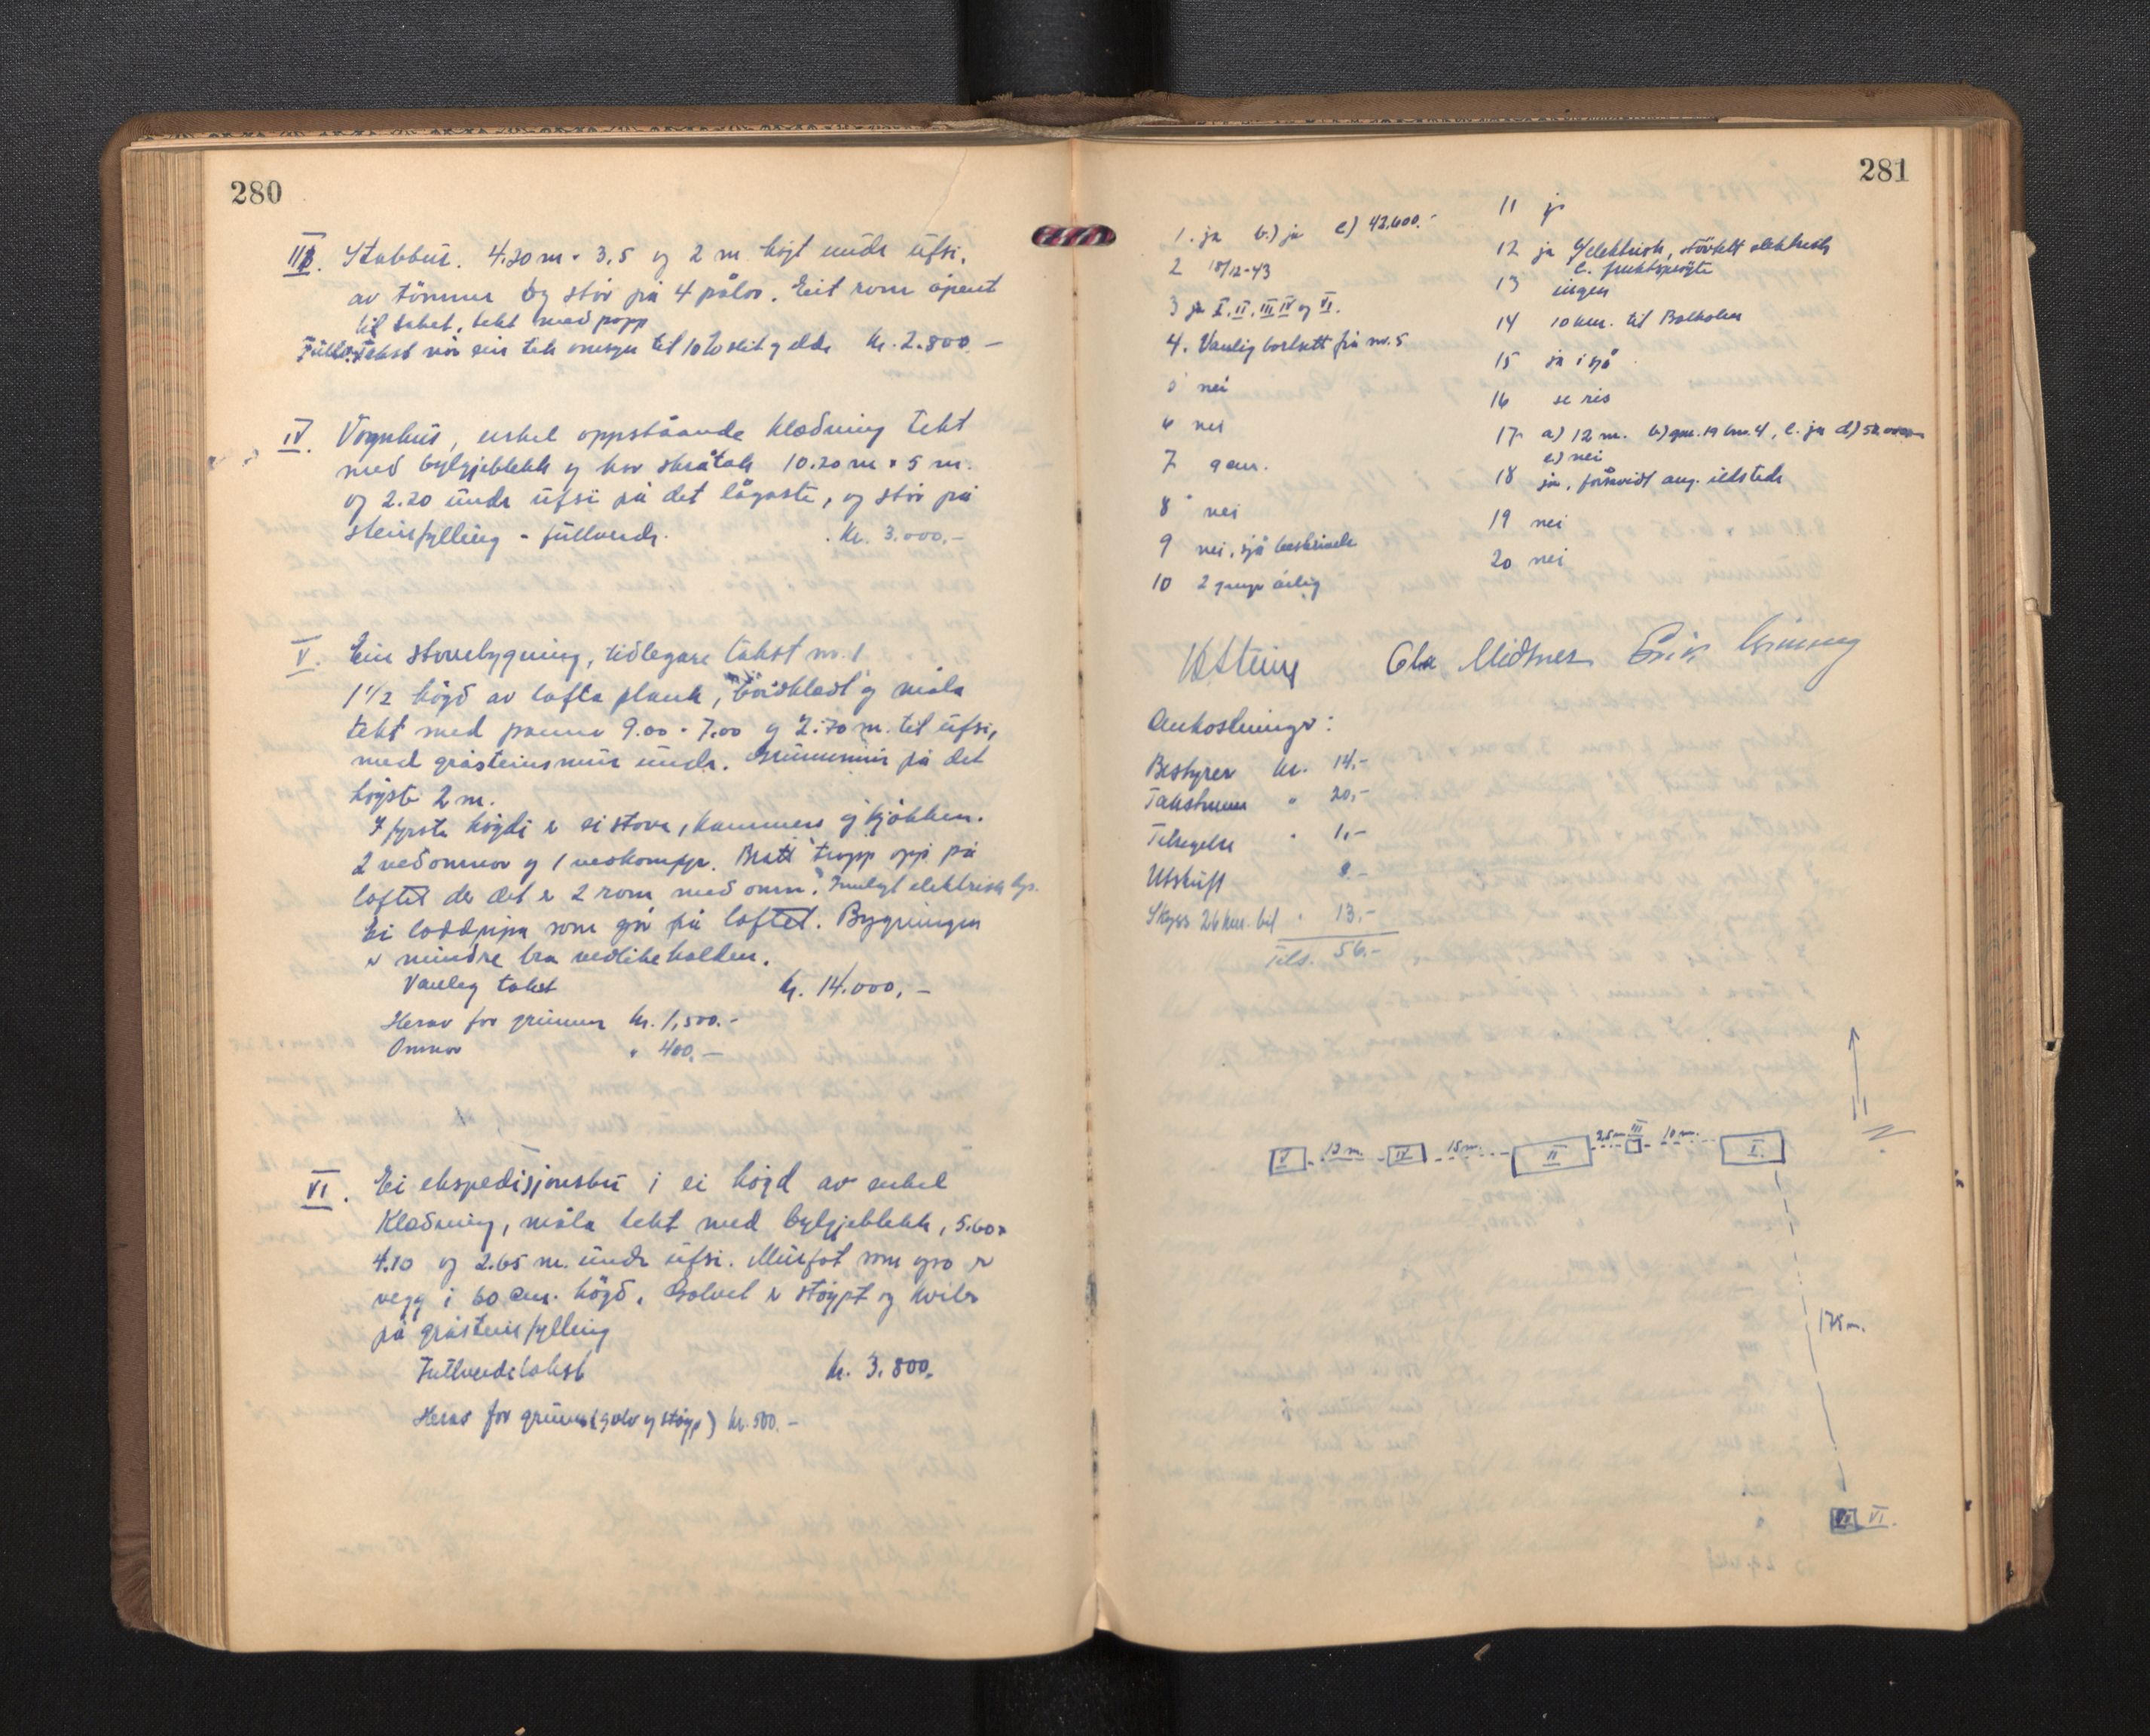 280
III. Stabbur. 4.20 m × 3,5 og 2 m högt undr ufsi,
av tömmer og står på 4 pålar. Eit rom ópent
til taket, tekt med papp
Fullv. Takst når ein tek omsyn til slit og elde kr. 2.800.—
IV. Vognhus, enkel oppståande klædning tekt
med bylgjeblekk og har skråtak 10.20 m × 5 m.
og 2.20 undr ufsi på det lågaste, og står på
steinfylling - fullverdi. Kr. 3.000.-
V. Ein stovebygning, tidlegare takst nr. 1
1 1/2 högd av lafta plank, bordklædt og måla
tekt med panner 9.00 × 7.00 og 2.70 m. til ufsi,
med gråsteinsmur undr. Grunnmur på det
högste 2 m.
I fyrste högdi er ei stova, kammers og kjökken.
2 vedomnar og 1 vedkomfyr. Bratt tropp opp på
loftet der det er 2 rom med omn. Innlagt elektrisk lys.
Ei loddpipa som går på loftet. Bygningen
er mindre bra vedlikehalden.
Vanleg takst kr. 14.000,-
Herav for grunnmur kr. 1,500.-
Omnar " 400.-
VI. Ei ekspedisjonsbu i ei högd av enkel
Klædning, måla tekt med bylgjeblekk, 5.60 ×
4.10 og 2.65 m. undr ufsi. Murfot som
vegg i 60 cm. högd. Golvet er stöypt og kviler
på gråsteinsfylling
Fullverditakst kr. 3.800.
Herav for grunnmur (golv og stöyp) kr. 500.-
281
1. ja b.) ja c) 42.600.-
2 18/12-43
3 ja I. II. III IV og VI.
4. Vanlig bortsett frå nr. 5
5 nei
6 nei
7 9 cm.
8 nei
9 nei, sjå beskrivelse
10 2 gangr årlig
11 ja
12 ja b/elektrisk, stövfelt elektrisk
c. fruktsprøyte
13 ingen
14 10 km. til Balholm
15 ja i sjö
16 se ris
17 a) 12 m. b) gnr. 19 bnr. 4, c. ja d)
e) nei
18 ja, forsåvidt ang. ildsteder
19 nei
20 nei
Ola Midtnes Erik Grinning
Omkostninger:
Bestyrer kr. 14.-
Takstmenn " 20,-
Tilsegelse " 1.-
Utskrift 8.-
Skyss 26 km. bil " 13.-
Tils. 56.-
N
V 12 m. IV 15 m. II 25 m III 10 m. I.
175 m.
VI.